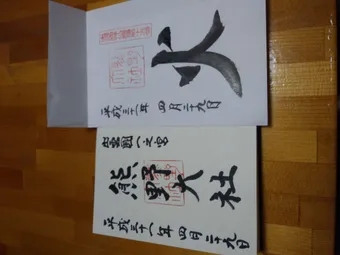 火
平成三十一年 四月二十九日
出雲國一之宮
熊野大社
平成三十一年 四月二十九日